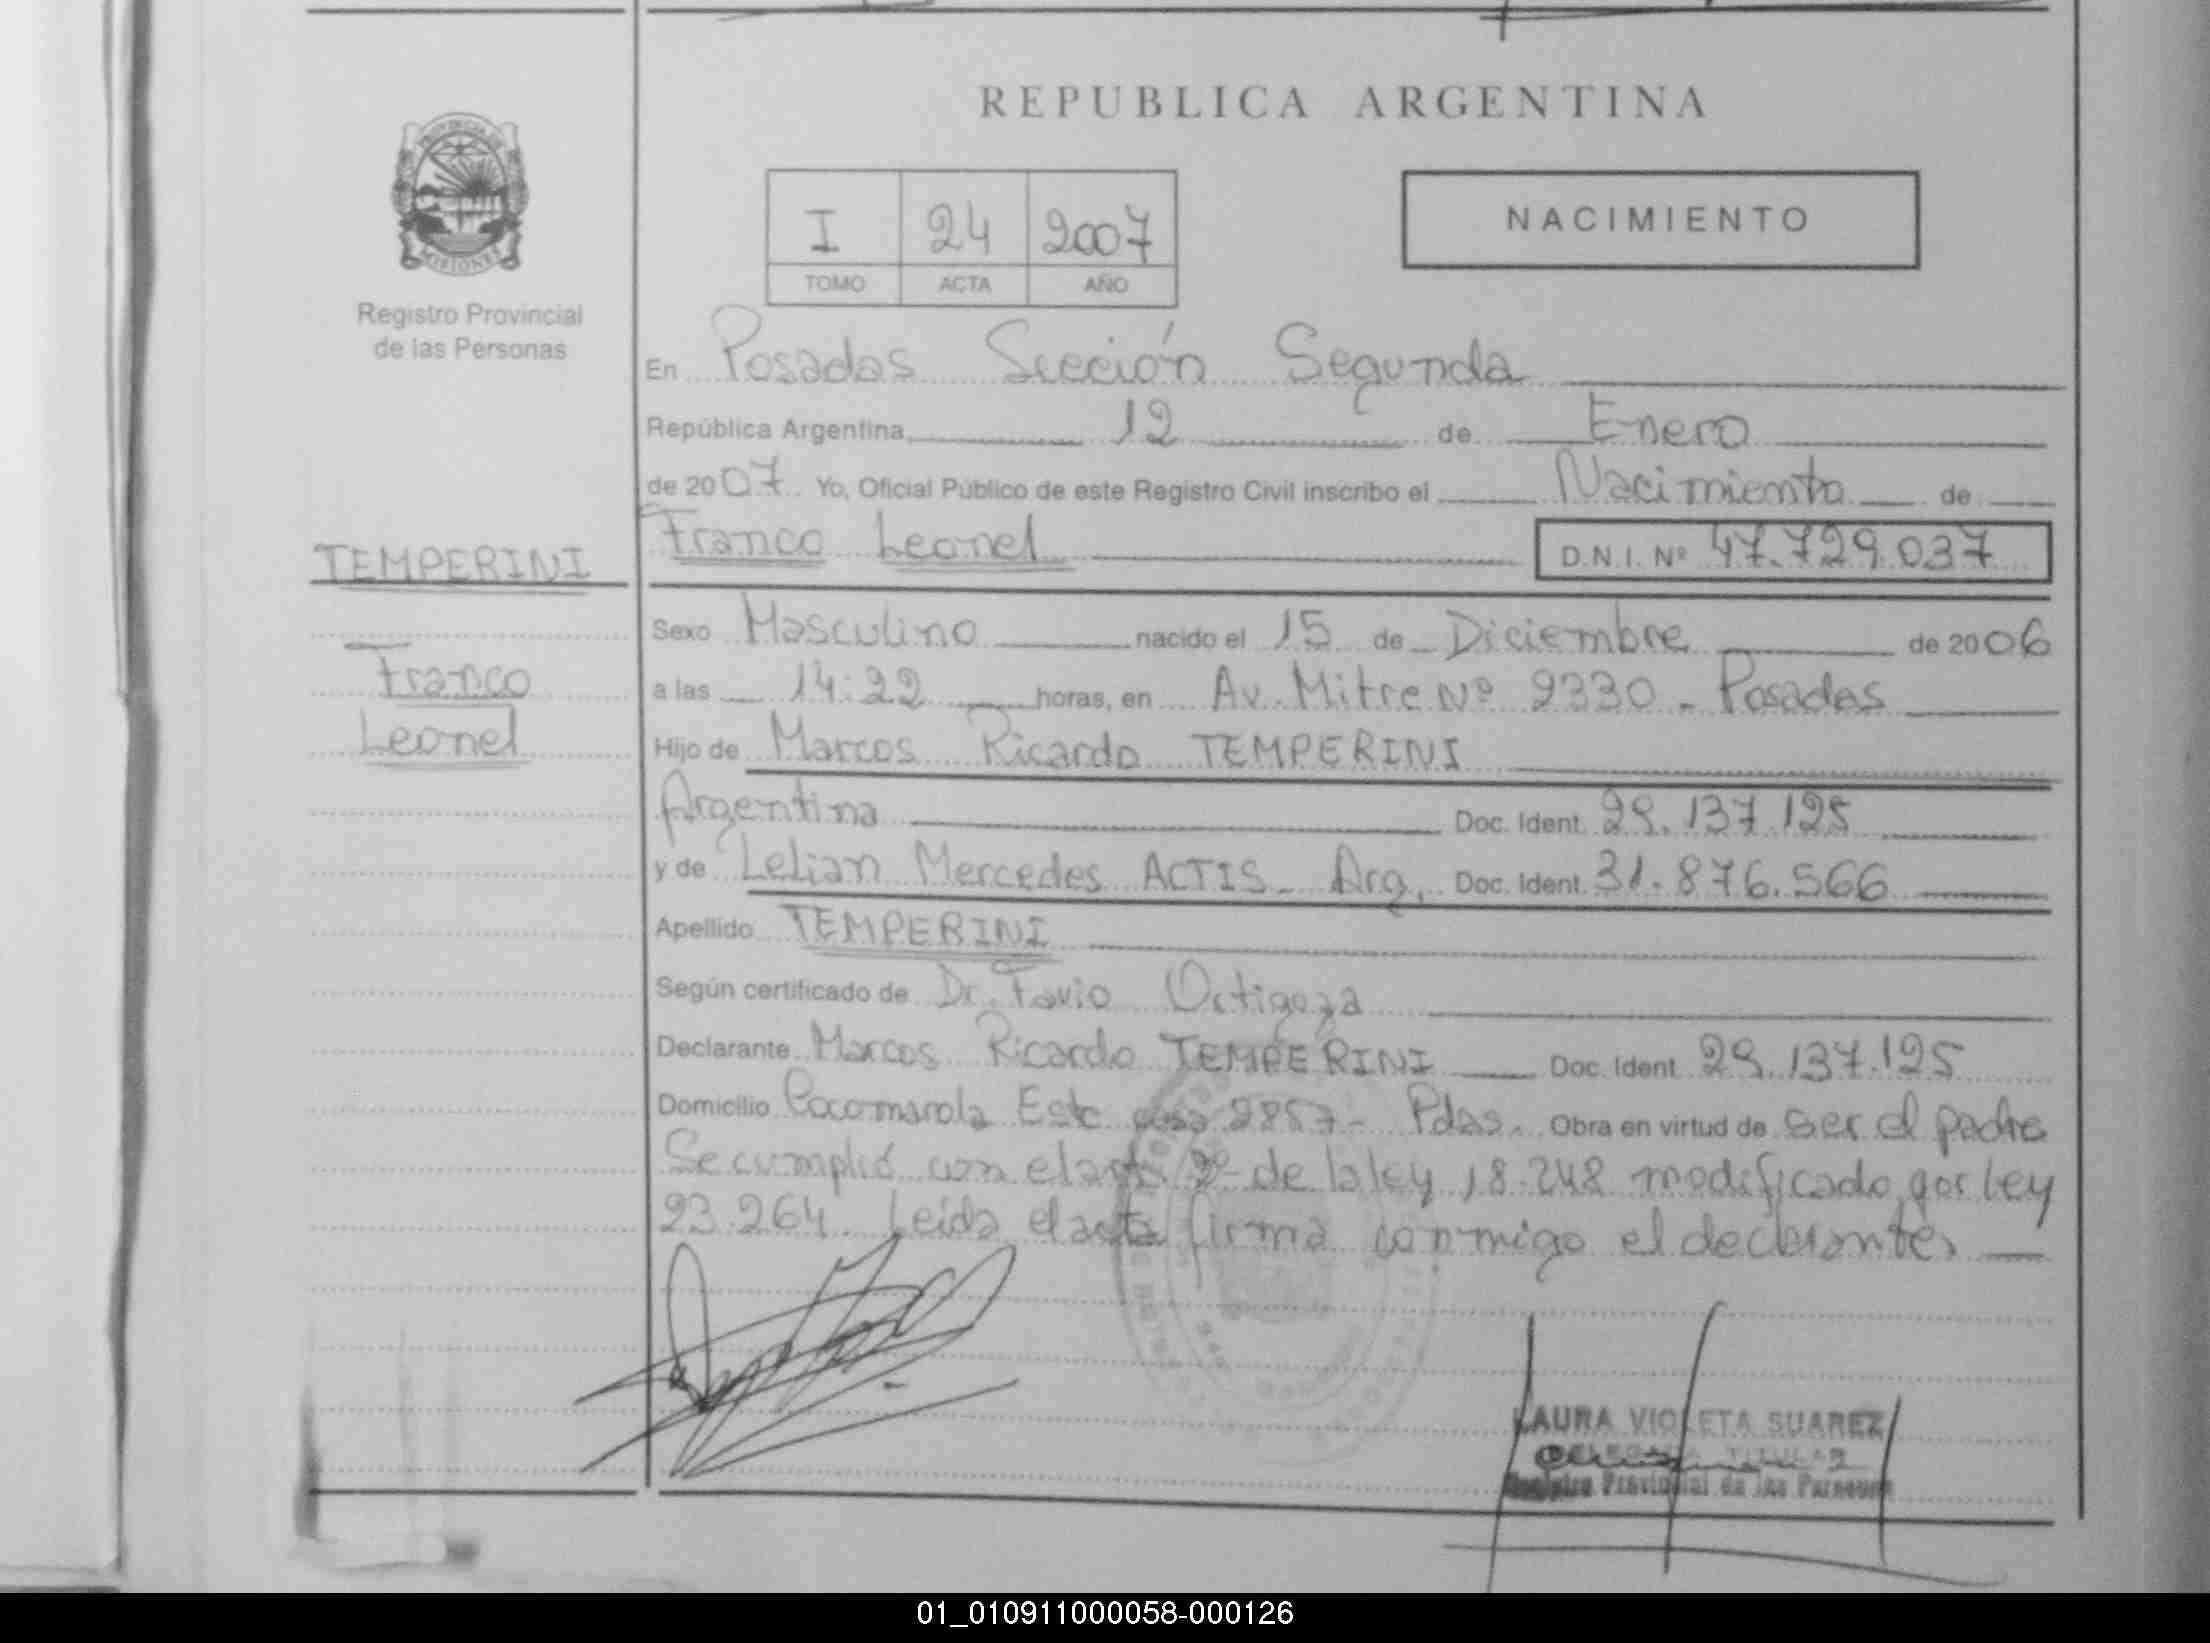 REPUBLICA ARGENTINA
PROVINCIA DE
MISIONES
Registro Provincial
de las Personas
I 24 2007
TOMO ACTA AÑO
NACIMIENTO
En Posadas Sección Segunda
República Argentina, 12 de Enero
de 2007 Yo, Oficial Público de este Registro Civil inscribo el Nacimiento de
Franco Leonel D.N.I. Nº 47.729.037
TEMPERINI
Franco
Leonel
Sexo Masculino nacido el 15 de Diciembre de 2006
a las 14:22 horas, en Av. Mitre Nº 2330 - Posadas
Hijo de Marcos Ricardo TEMPERINI
Argentina Doc. Ident. 29.137.125
y de Lelian Mercedes ACTIS - Arg. Doc. Ident. 31.876.566
Apellido TEMPERINI
Según certificado de Dr. Favio Ortigoza
Declarante Marcos Ricardo TEMPERINI Doc. Ident. 29.137.125
Domicilio Cocomarola Este casa 2857 - Pdas. Obra en virtud de ser el padre
Se cumplió con el arto 2º de la ley 18.248 modificado por ley
23.264 Leída el acta firma conmigo el declarante.
LAURA VIOLETA SUAREZ
DELEGADA TITULAR
Registro Provincial de las Personas
01_010911000058-000126